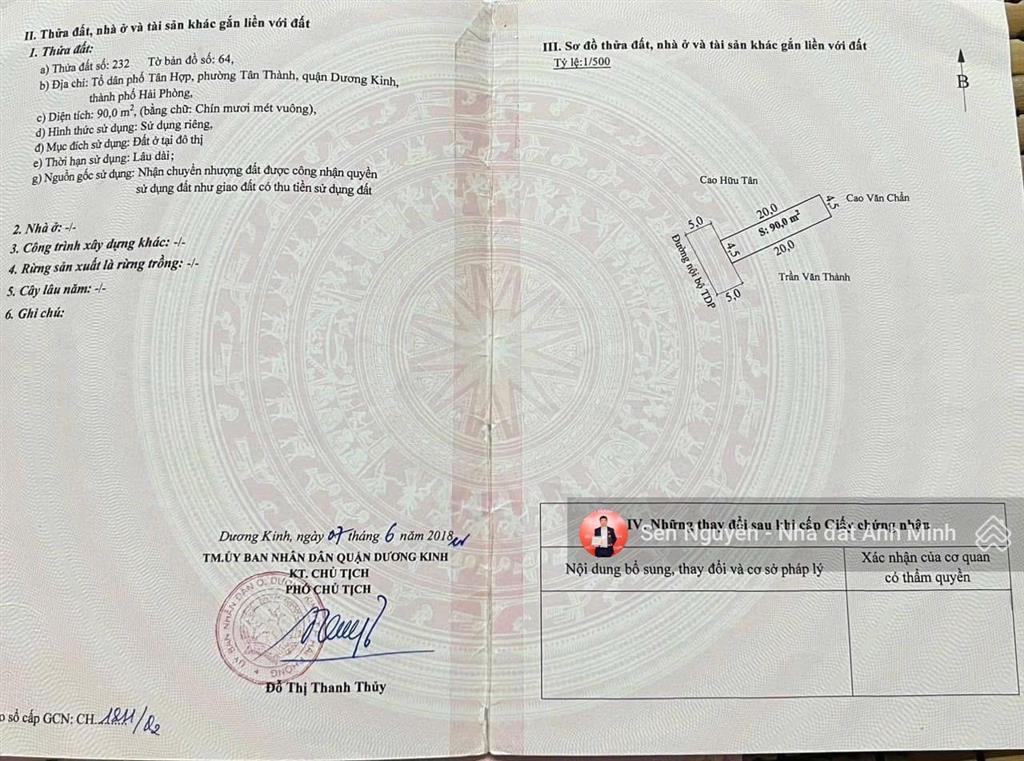 II. Thửa đất, nhà ở và tài sản khác gắn liền với đất
1. Thửa đất:
a) Thửa đất số: 232 Tờ bản đồ số: 64,
b) Địa chỉ: Tổ dân phố Tân Hợp, phường Tân Thành, quận Dương Kinh,
thành phố Hải Phòng,
c) Diện tích: 90,0 m², (bằng chữ: Chín mươi mét vuông),
d) Hình thức sử dụng: Sử dụng riêng,
đ) Mục đích sử dụng: Đất ở tại đô thị
e) Thời hạn sử dụng: Lâu dài;
g) Nguồn gốc sử dụng: Nhận chuyển nhượng đất được công nhận quyền
sử dụng đất như giao đất có thu tiền sử dụng đất
2. Nhà ở: -/-
3. Công trình xây dựng khác: -/-
4. Rừng sản xuất là rừng trồng: -/-
5. Cây lâu năm: -/-
6. Ghi chú:
Dương Kinh, ngày 07 tháng 6 năm 2018
TM.ỦY BAN NHÂN DÂN QUẬN DƯƠNG KINH
KT. CHỦ TỊCH
PHÓ CHỦ TỊCH
Đỗ Thị Thanh Thủy
o sổ cấp GCN: CH
III. Sơ đồ thửa đất, nhà ở và tài sản khác gắn liền với đất
Tỷ lệ:1/500
B
Cao Hữu Tân
Cao Văn Chẩn
20,0
4,5
S: 90,0 m²
5,0
4,5
20,0
Đường nội bộ TDP
Trần Văn Thành
5,0
IV. Những thay đổi sau khi cấp Giấy chứng nhận
Sen Nguyen - Nhà đất Anh Minh
Nội dung bổ sung, thay đổi và cơ sở pháp lý
Xác nhận của cơ quan
có thẩm quyền